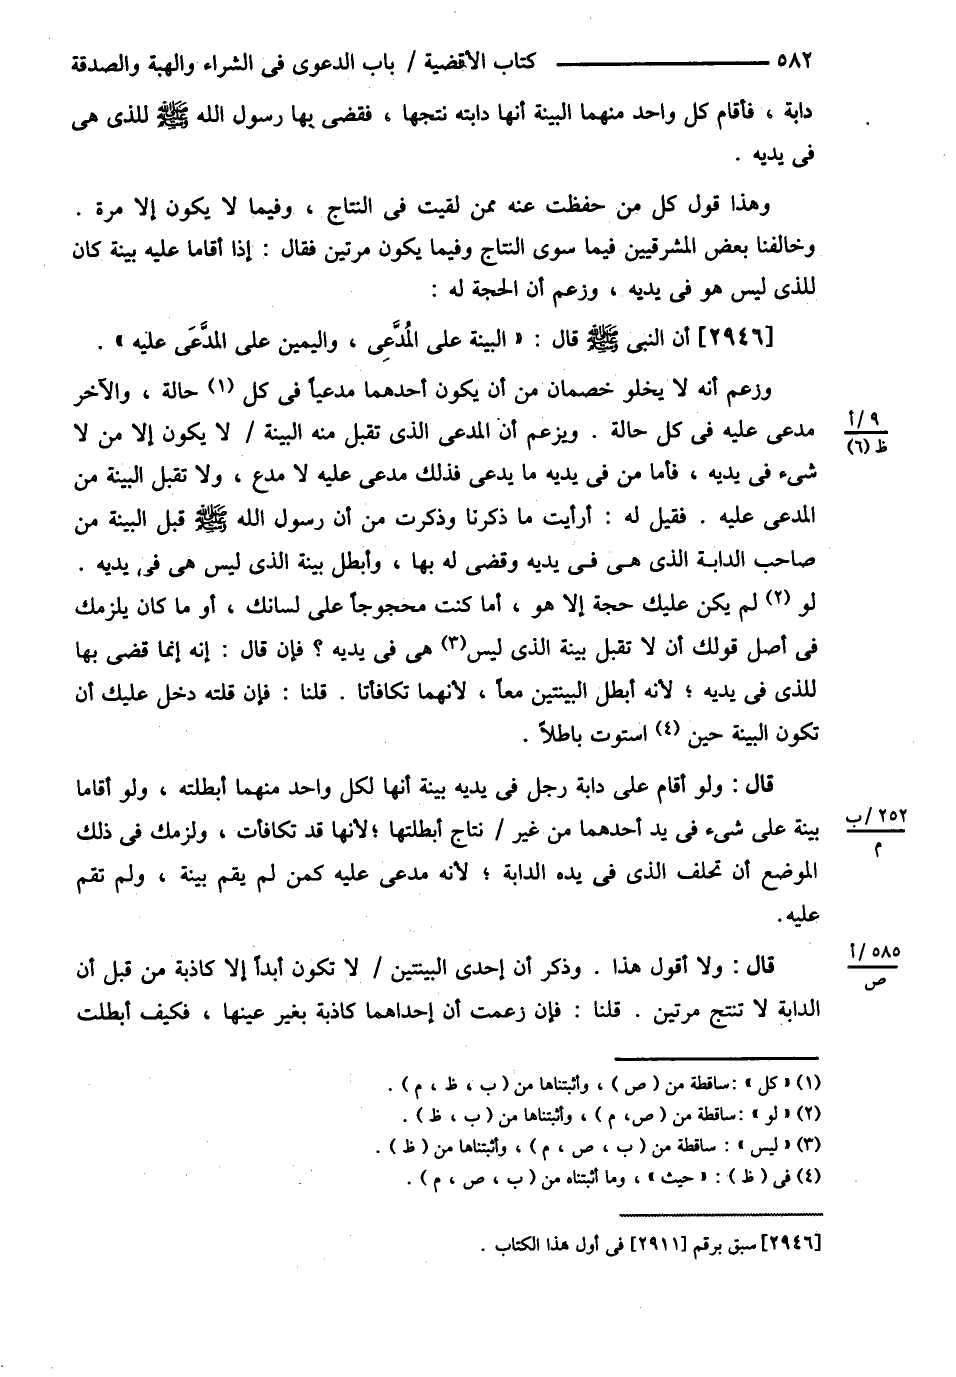 ٥٨٢ ــــــــــــــــ كتاب الأقضية / باب الدعوى فى الشراء والهبة والصدقة
دابة ، فأقام كل واحد منهما البينة أنها دابته نتجها ، فقضى بها رسول الله ﷺ للذى هى
فى يديه .
وهذا قول كل من حفظت عنه ممن لقيت فى النتاج ، وفيما لا يكون إلا مرة .
وخالفنا بعض المشرقيين فيما سوى النتاج وفيما يكون مرتين فقال : إذا أقاما عليه بينة كان
للذى ليس هو فى يديه ، وزعم أن الحجة له :
[٢٩٤٦] أن النبى ﷺ قال : « البينة على المُدَّعِى ، واليمين على المدَّعَى عليه » .
وزعم أنه لا يخلو خصمان من أن يكون أحدهما مدعياً فى كل (١) حالة ، والآخر
مدعى عليه فى كل حالة . ويزعم أن المدعى الذى تقبل منه البينة / لا يكون إلا من لا
٩ /أ
ظ (٦)
شىء فى يديه ، فأما من فى يديه ما يدعى فذلك مدعى عليه لا مدع ، ولا تقبل البينة من
المدعى عليه . فقيل له : أرأيت ما ذكرنا وذكرت من أن رسول الله ﷺ قبل البينة من
صاحب الدابة الذى هى فى يديه وقضى له بها ، وأبطل بينة الذى ليس هى فى يديه .
لو (٢) لم يكن عليك حجة إلا هو ، أما كنت محجوجاً على لسانك ، أو ما كان يلزمك
فى أصل قولك أن لا تقبل بينة الذى ليس(٣) هى فى يديه ؟ فإن قال : إنه إنما قضى بها
للذى فى يديه ؛ لأنه أبطل البينتين معاً ، لأنهما تكافأتا . قلنا : فإن قلته دخل عليك أن
تكون البينة حين (٤) استوت باطلاً .
قال : ولو أقام على دابة رجل فى يديه بينة أنها لكل واحد منهما أبطلته ، ولو أقاما
بينة على شىء فى يد أحدهما من غير / نتاج أبطلتها ؛لأنها قد تكافأت ، ولزمك فى ذلك
٢٥٢ /ب
م
الموضع أن تحلف الذى فى يده الدابة ؛ لأنه مدعى عليه كمن لم يقم بينة ، ولم تقم
عليه.
قال : ولا أقول هذا . وذكر أن إحدى البينتين / لا تكون أبداً إلا كاذبة من قبل أن
٥٨٥ /أ
ص
الدابة لا تنتج مرتين . قلنا : فإن زعمت أن إحداهما كاذبة بغير عينها ، فكيف أبطلت
(١) « كل » :ساقطة من ( ص ) ، وأثبتناها من ( ب ، ظ ، م ) .
(٢) « لو » :ساقطة من ( ص، م ) ، وأثبتناها من ( ب ، ظ ) .
(٣) « ليس » : ساقطة من ( ب ، ص ، م ) ، وأثبتناها من ( ظ ) .
(٤) فى ( ظ ) : « حيث » ، وما أثبتناه من ( ب ، ص ، م ) .
[٢٩٤٦] سبق برقم [٢٩١١] فى أول هذا الكتاب .